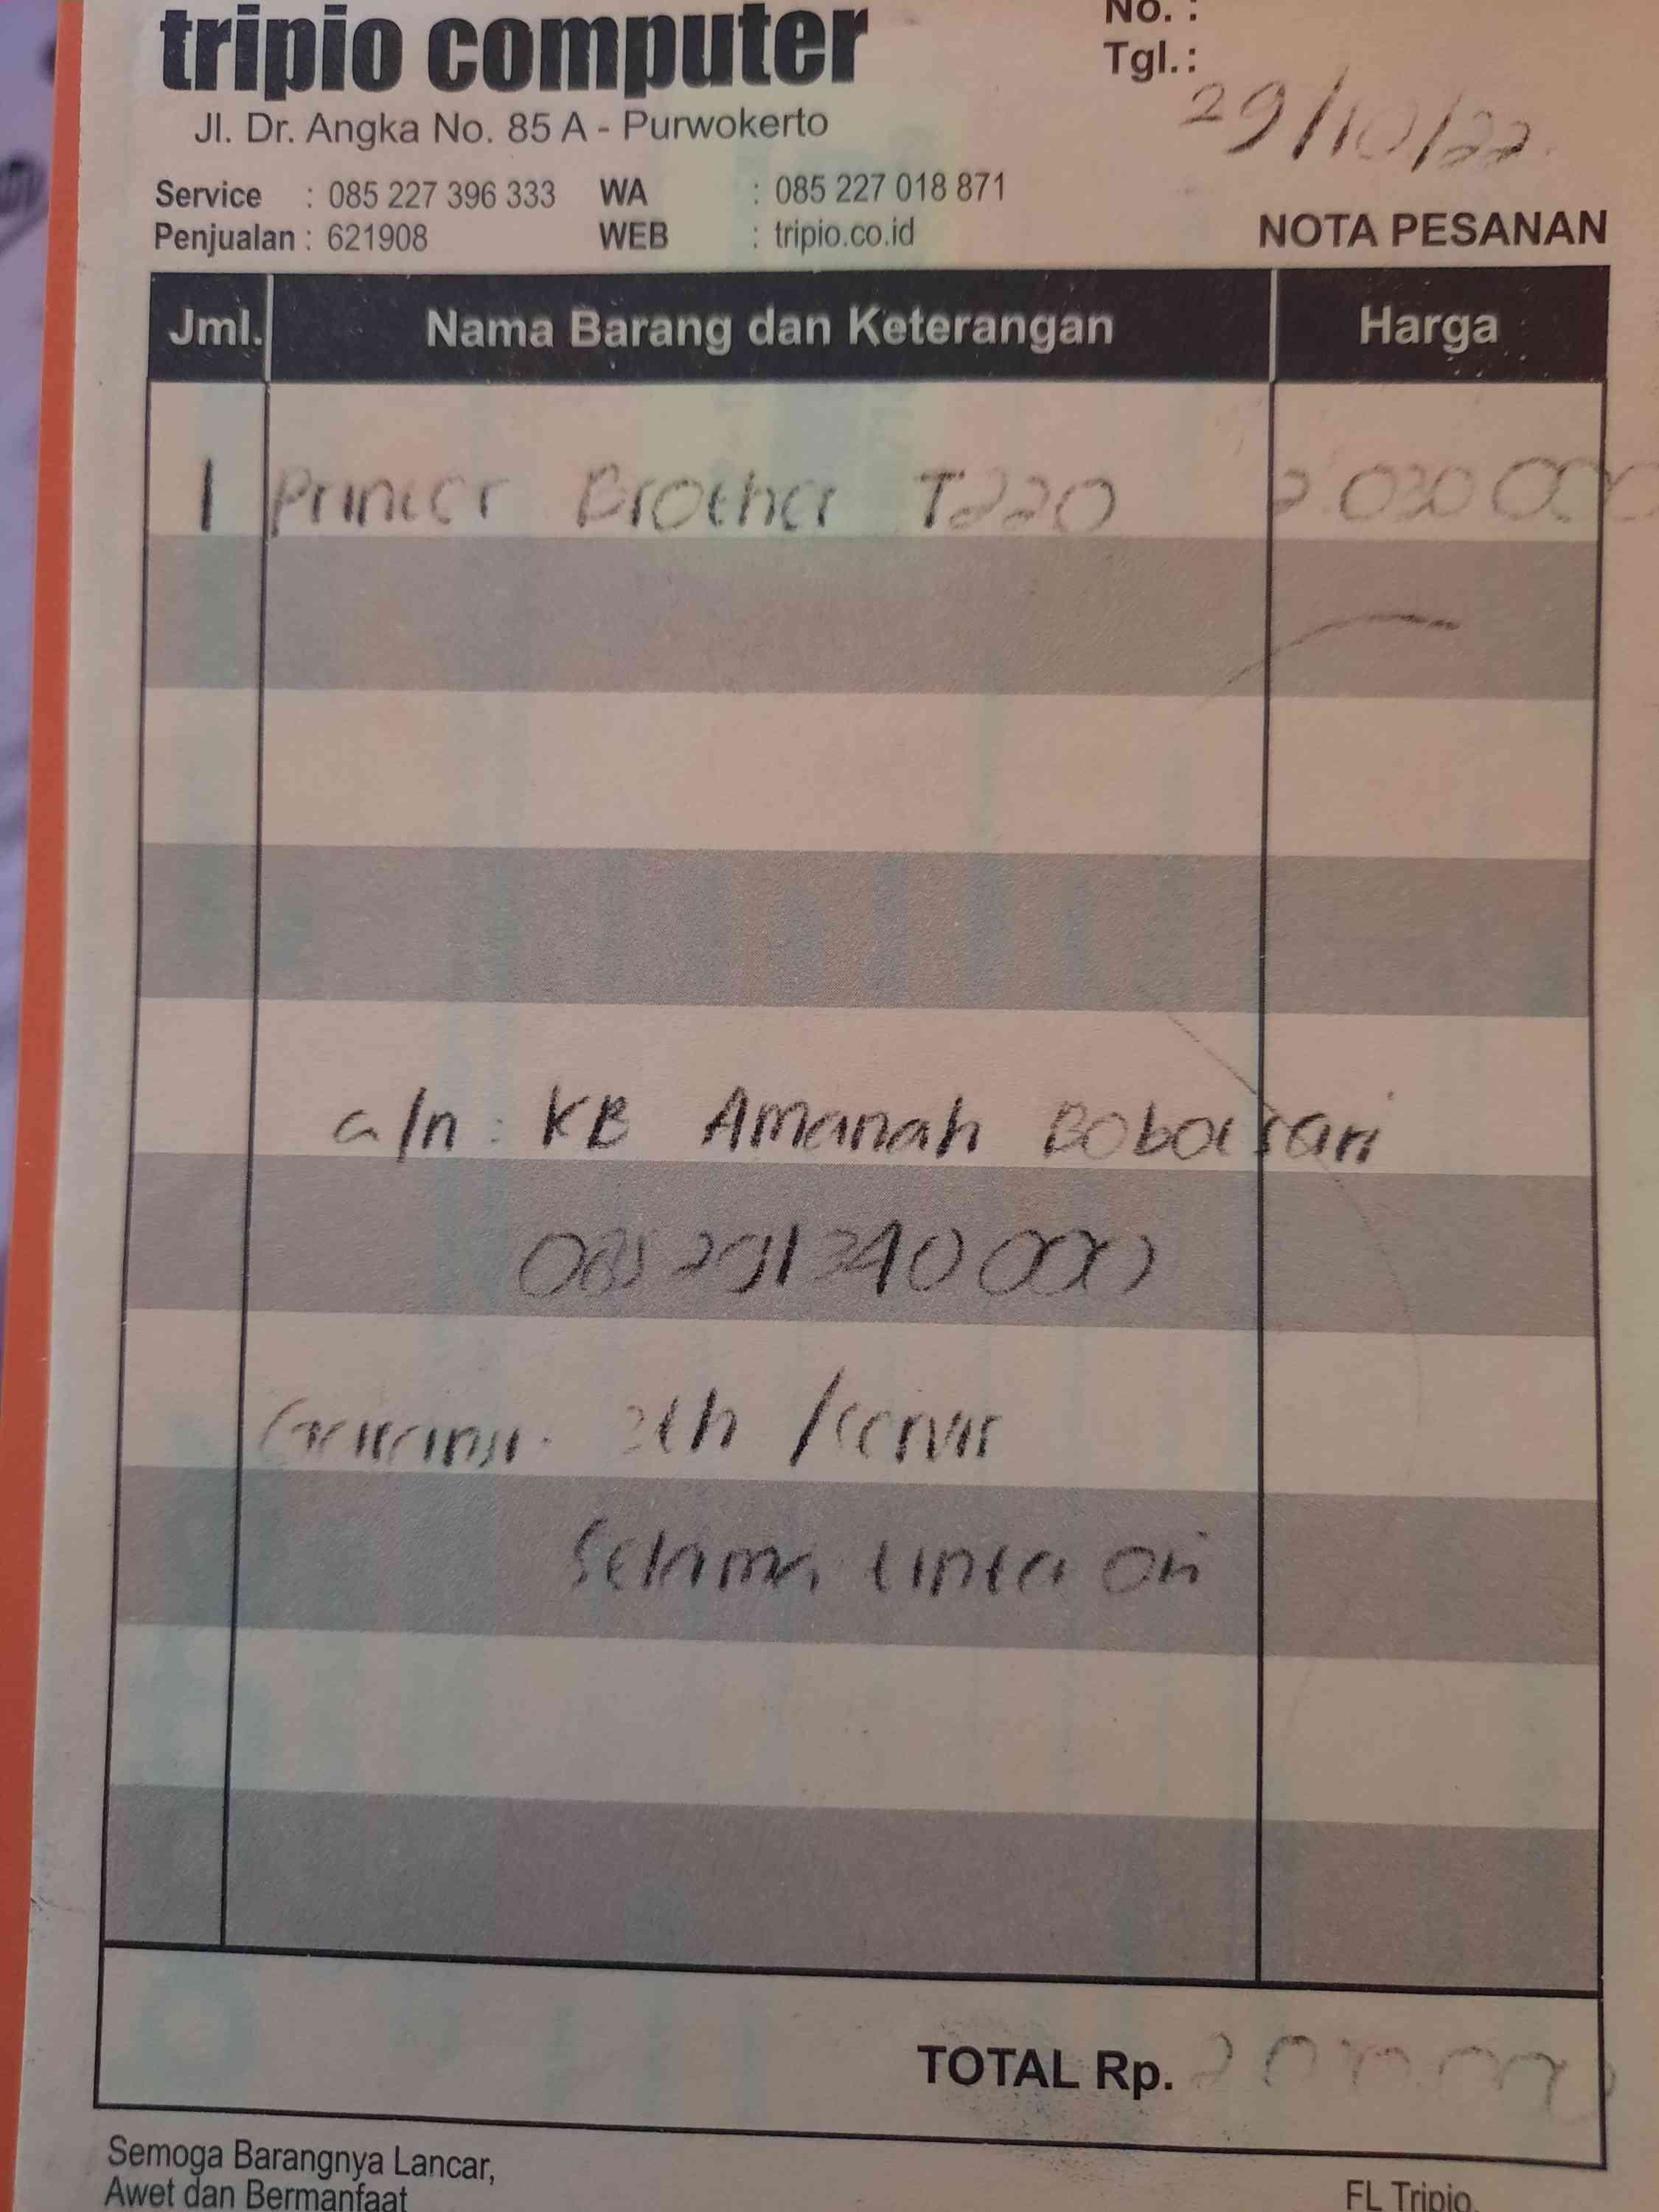 tripio computer
No. :
Tgl. :
29/10/22
Jl. Dr. Angka No. 85 A - Purwokerto
Service : 085 227 396 333 WA : 085 227 018 871
Penjualan : 621908 WEB : tripio.co.id
NOTA PESANAN
Jml. Nama Barang dan Keterangan Harga
1 Printer Brother T220 2 030 000
a/n : KB Amanah Bobotsari
Garansi 2th / servis
Selama tinta ori
TOTAL Rp.
Semoga Barangnya Lancar,
Awet dan Bermanfaat
FL Tripio.